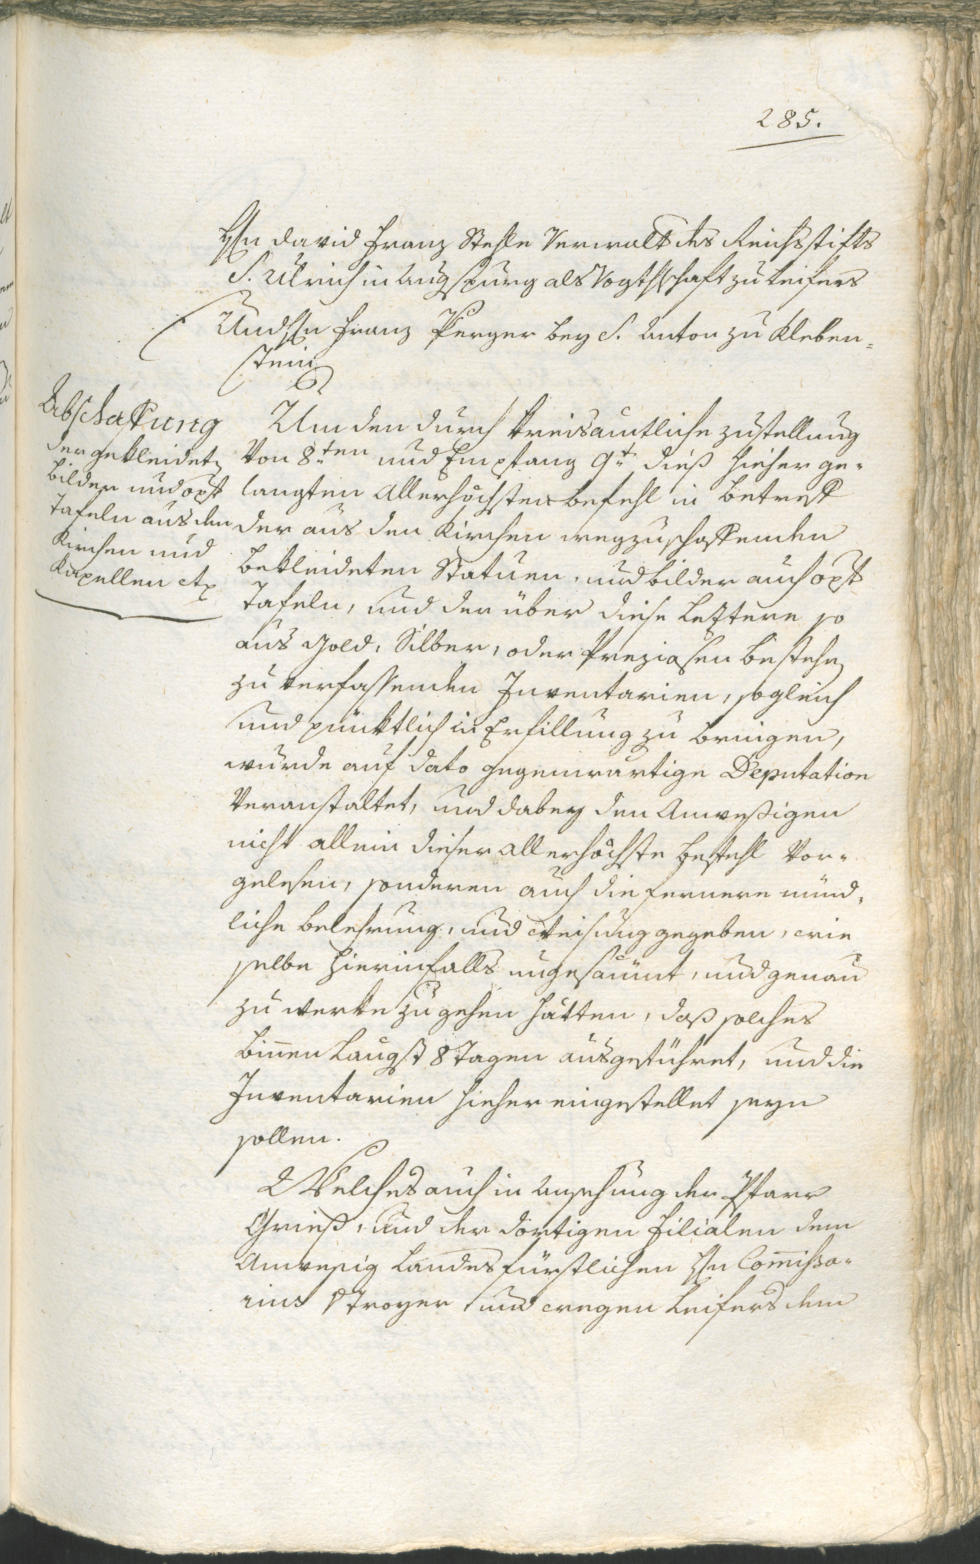 285.
Hn David Franz Stehle Verwalt des Reichsstifts
S. Ulrich in Augspurg als Vogthschaft zu Leifers
Und Hn Franz Perger bey S. Anton zu Kleben-
stein
Abschaffung
der gekleidet
Bilder und opf
Tafeln aus den
Kirchen und
Kapellen etz
Um den durch Kreisamtliche zustellung
Von 8ten und Empfang 9t dieß hieher ge-
langten Allerhöchsten befehl in betreff
der aus den Kirchen wegzuschaffenden
bekleideten Statuen, und bilder auch opf
Tafeln, und der über diese Leztere so
aus Gold, Silber, oder Preziosen bestehen
zu verfassenden Inventarien, sogleich
und pünktlich in Erfillung zu bringen,
wurde auf dato gegenwärtige Deputation
Veranstaltet, und dabey den Anweßigen
nicht allein dieser allerhöchste befehl Vor-
gelesen, sonderen auch die fernere münd-
liche belehrung, und Weisung gegeben, wie
selbe hierinfalls ungesäumt, und genau
zu werke zu gehen hätten, daß solches
binnen Längst 8 Tagen ausgeführet, und die
Inventarien hieher eingestellet seyn
sollen.
Welches auch in Ansehung der Pfarr
Grieß, und der dortigen Filialen dem
Anweßig Landesfürstlichen Hn Commissa-
rius Stroyer und wegen Leifers dem